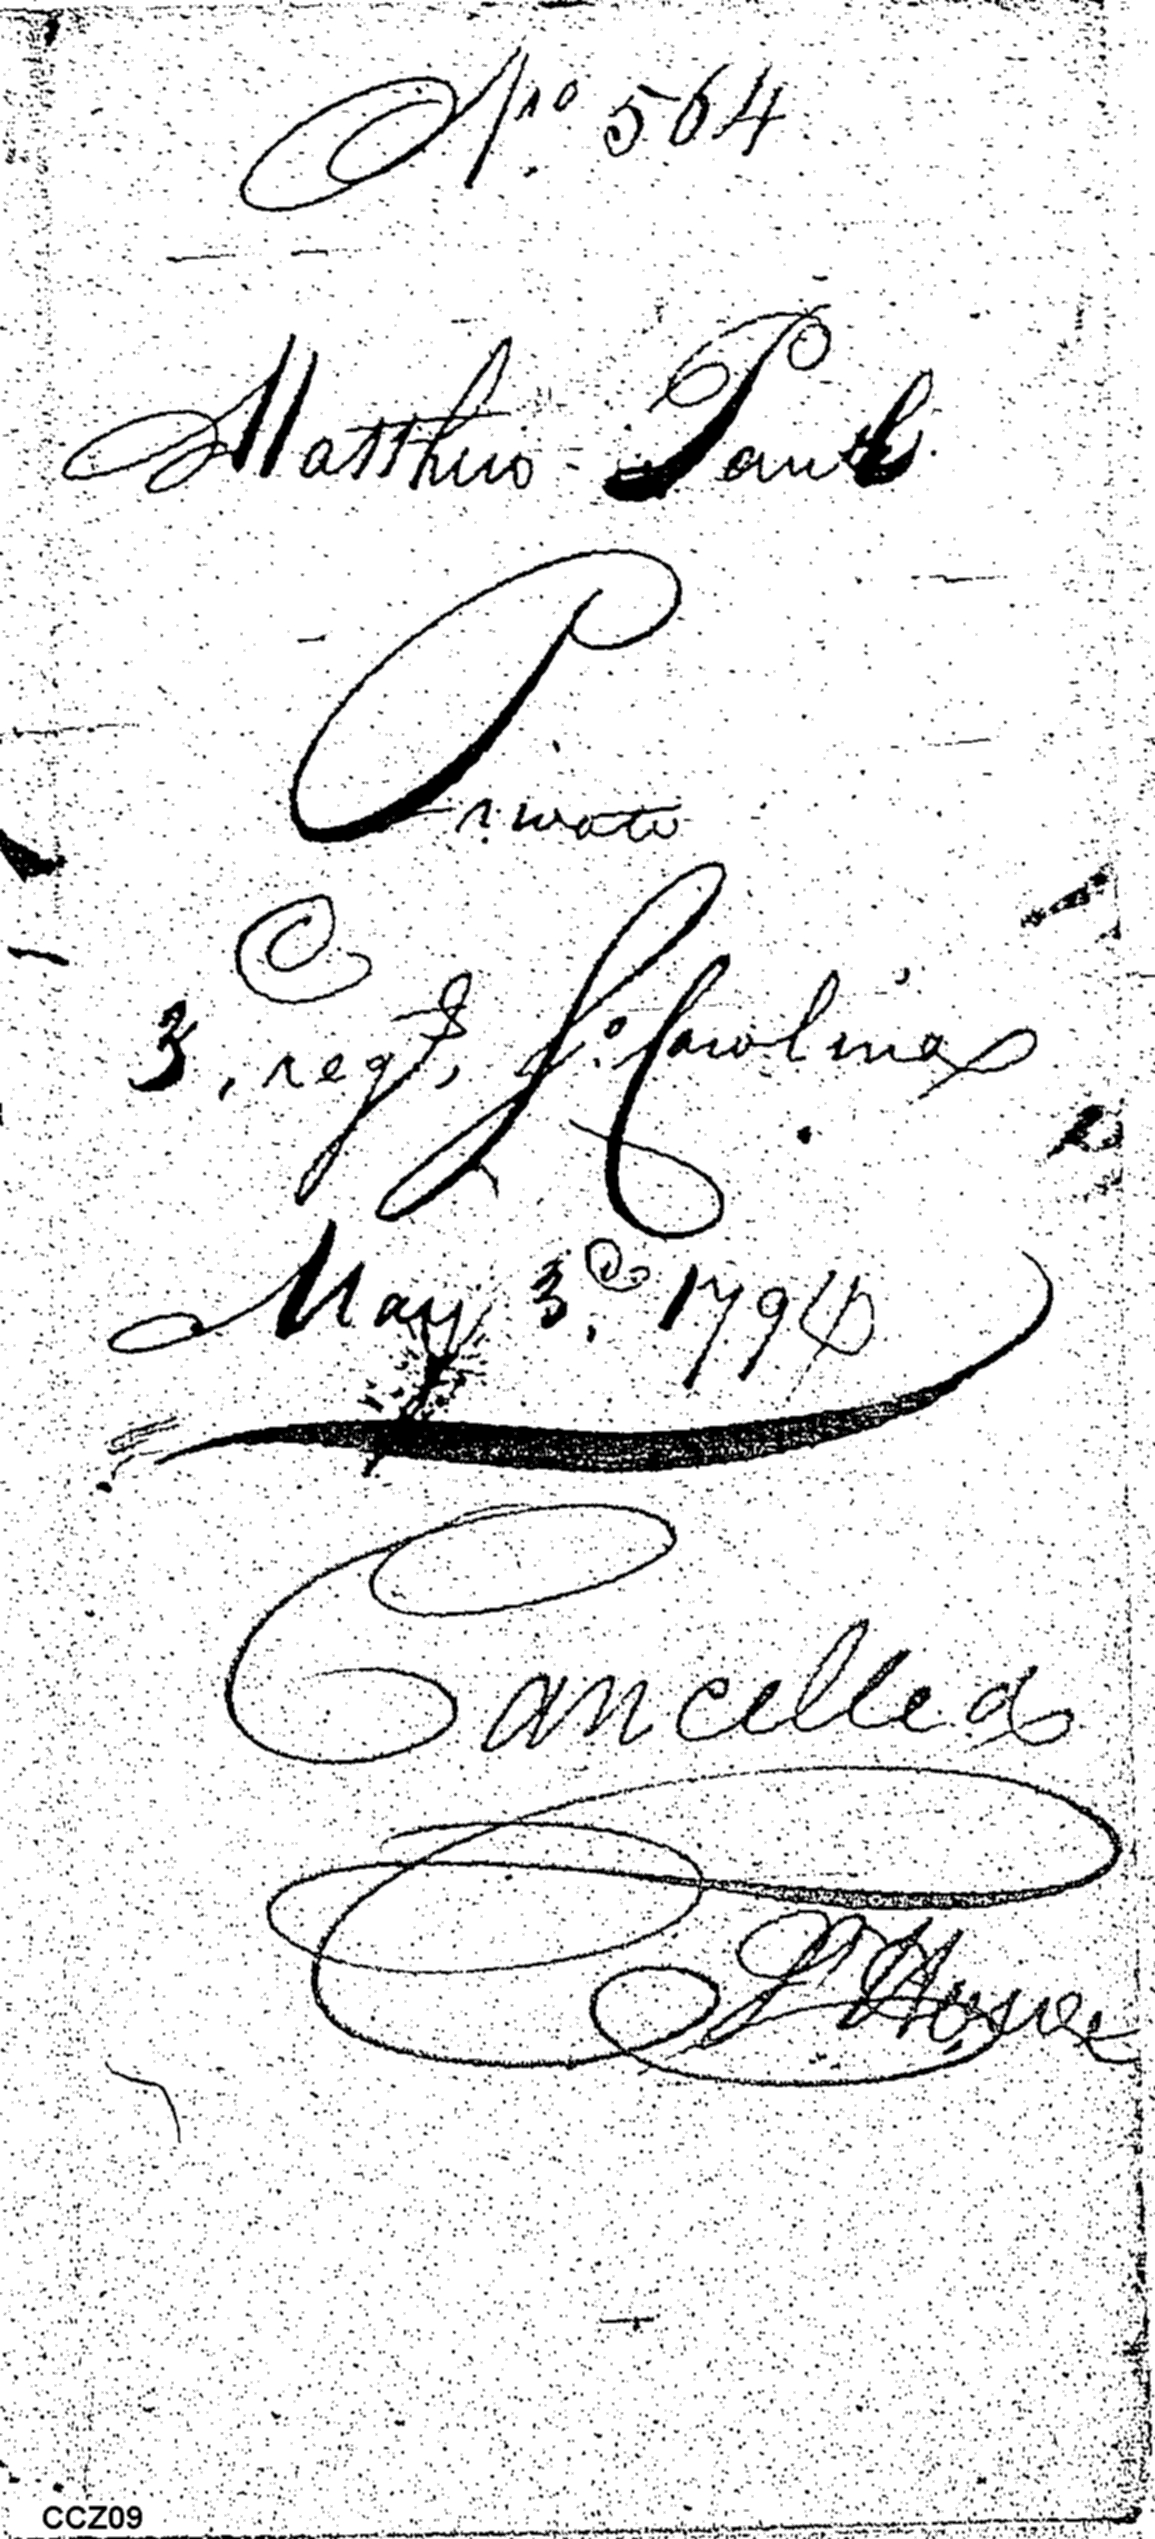 No 564
Matthew Paul
Private
3d, regt, So Carolina
May 3d. 1794
Cancelled
Howe
CCZ09